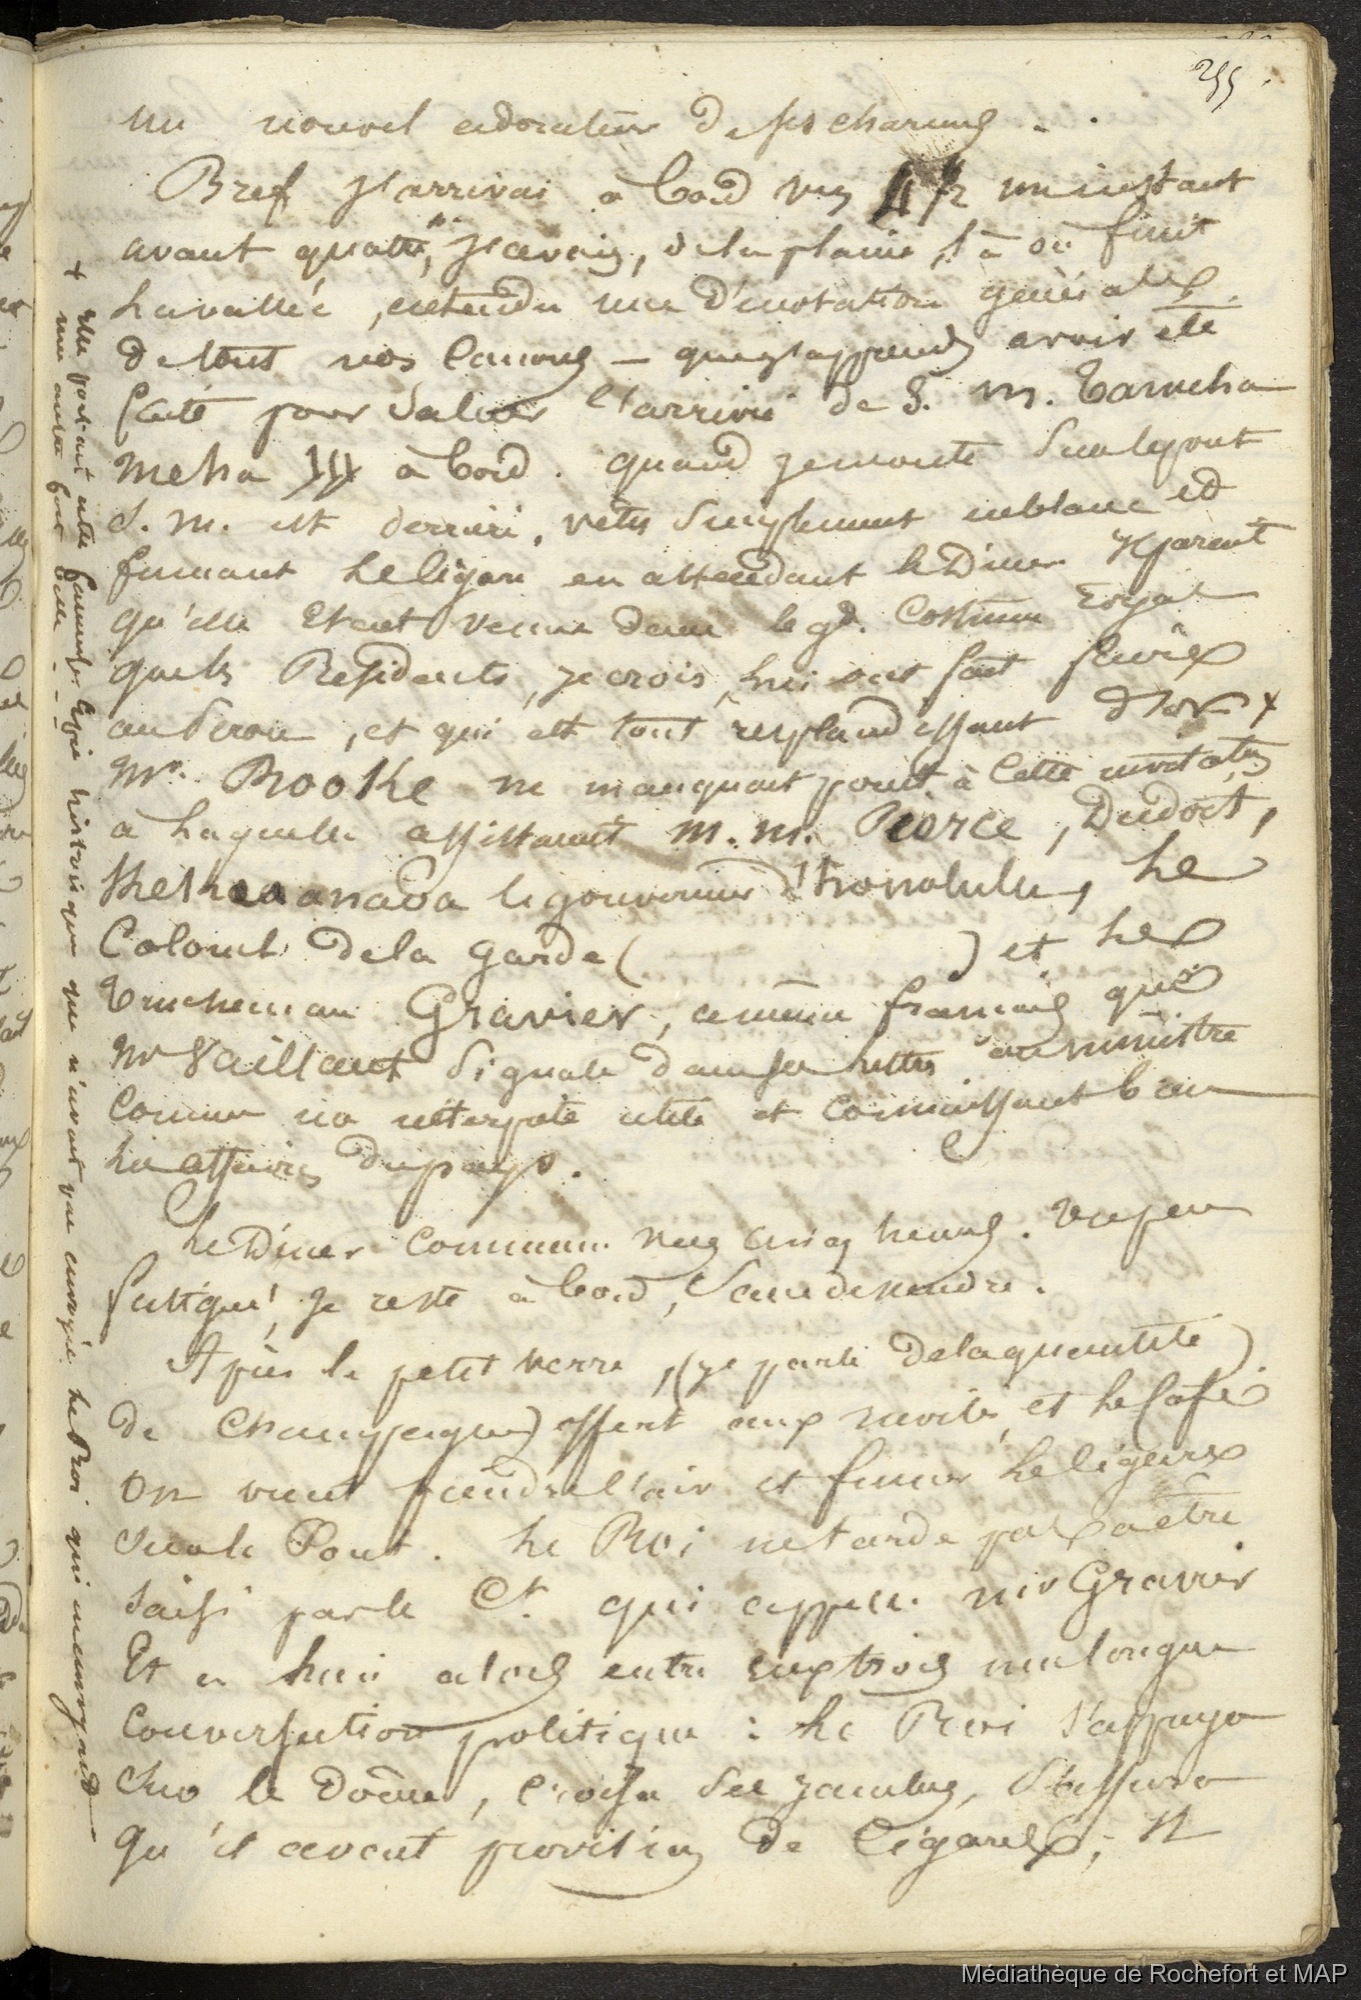 255
un nouvel adorateur de ses charmes . .
Bref j'arrivai à bord vers 4 h 1/2 un instant
avant quatre h, j'avais, de la plaine, là où finit
la vallée, entendu une détonation générale
de tous nos canons — que j'apprends avoir été
faite pour saluer l'arrivée de S. M. Tameha
meha III à bord. quand je monte sur le pont
S. M. est derrière, vetu simplement en blanc et
fumant le cigare en attendant le Diner. Il parait
qu'elle etait venue dans le gd. costume Royal
que les Residents, je crois, lui ont fait faire
au Perou, et qui est tout resplendissant d'or +
Mr. Rooke ne manquait point à cette invitation
à laquelle assistaient M. M. Pierce, Dudoit,
Kekuanaoa le gouverneur d'honolulu, le
Colonel de la garde ( ) et le
Trucheman Gravier, ce même français que
Mr Vaillant signale dans sa lettre au ministre
comme un interprete utile et connaissant bien
les affaires du pays.
Le Diner commence vers cinq heures. Un peu
fatigué, je reste à bord, sans descendre.
Après le petit verre, (je parle de la quantité)
de champagne) offert aux invités, et le café
on vient prendre l'air et fumer le cigare
sur le Pont. Le Roi ne tarde pas à être
saisi par le Ct. qui appelle Mr Gravier
Et on lia alors entre eux trois une longue
conversation politique : le Roi s'appuya
sur le Dôme, croisa ses jambes, s'assura
qu'il avait provision de cigares, Il
+ Elle portait cette fameuse Epée historique que n'avait pas envoyée le Roi qui m'envoyait
une autre fort belle - -
Médiathèque de Rochefort et MAP